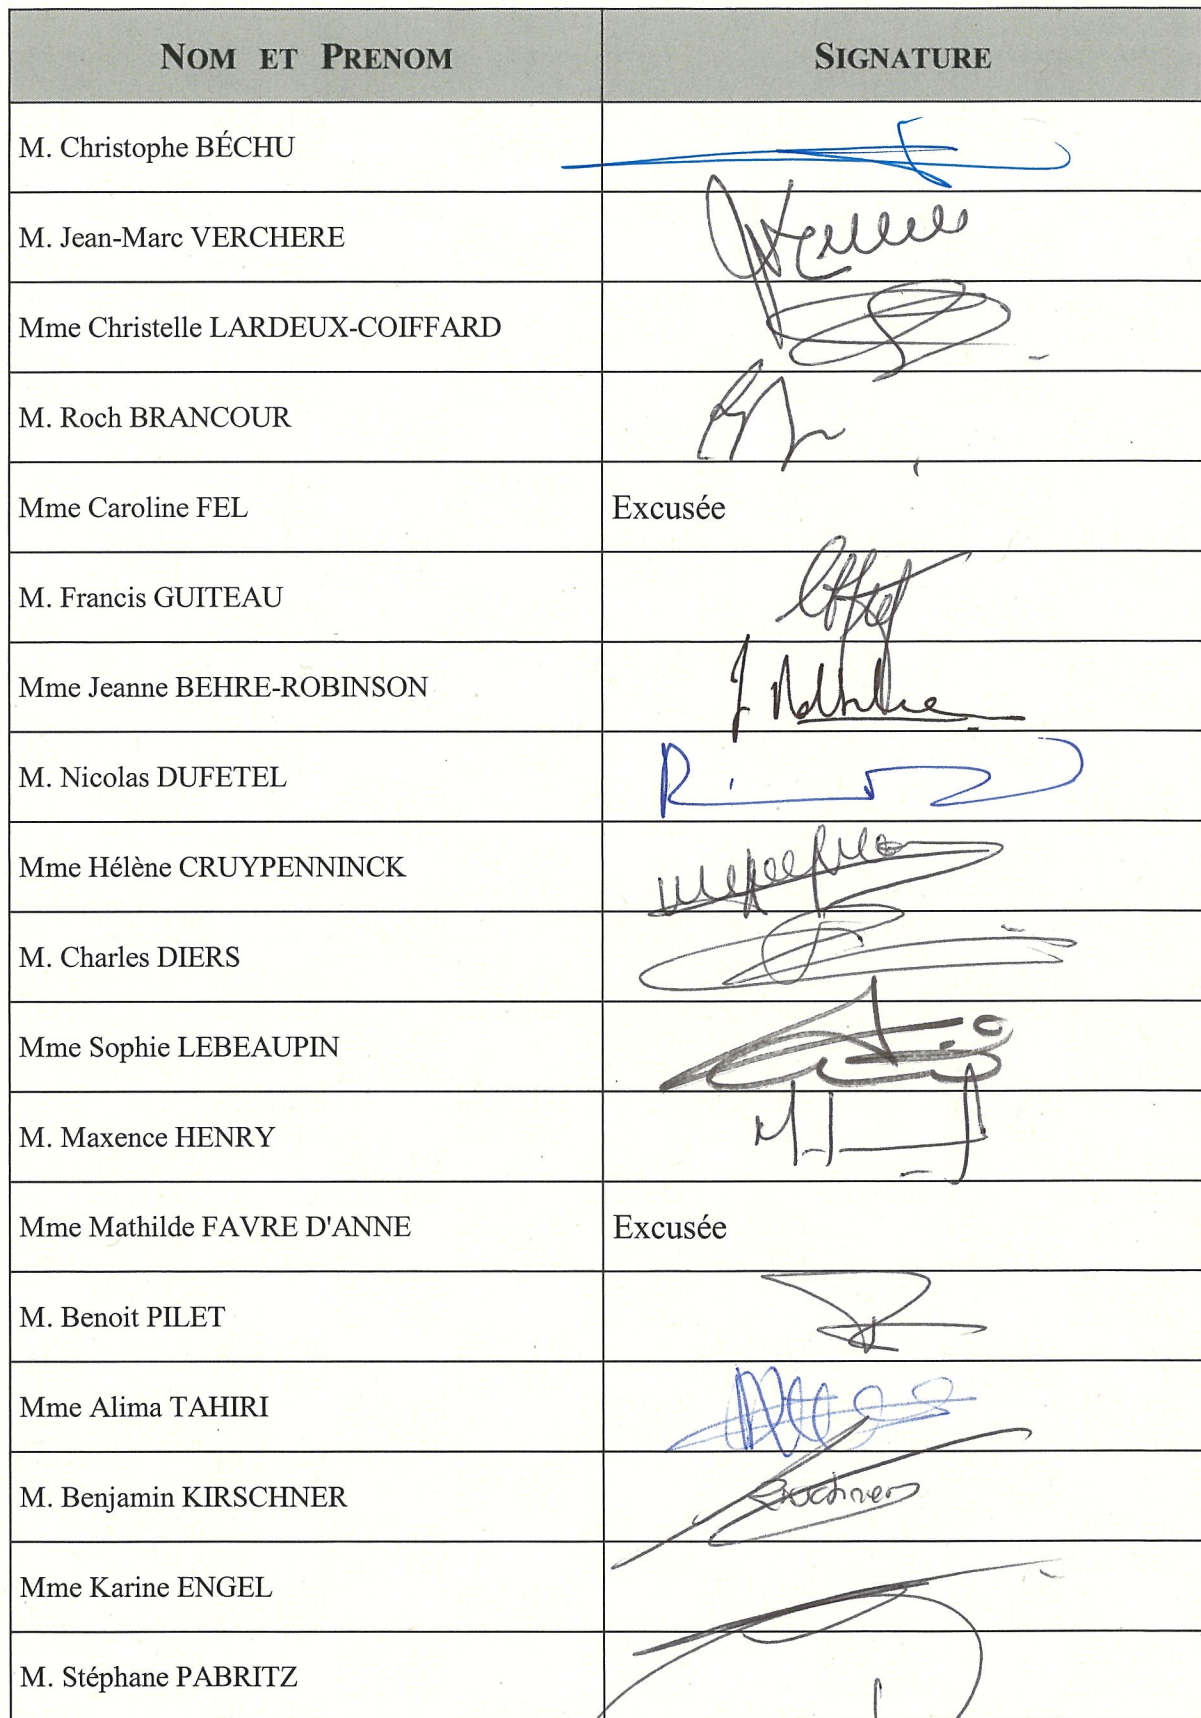 NOM ET PRENOM SIGNATURE
M. Christophe BÉCHU
M. Jean-Marc VERCHERE
Mme Christelle LARDEUX-COIFFARD
M. Roch BRANCOUR
Mme Caroline FEL Excusée
M. Francis GUITEAU
Mme Jeanne BEHRE-ROBINSON
M. Nicolas DUFETEL
Mme Hélène CRUYPENNINCK
M. Charles DIERS
Mme Sophie LEBEAUPIN
M. Maxence HENRY
Mme Mathilde FAVRE D'ANNE Excusée
M. Benoit PILET
Mme Alima TAHIRI
M. Benjamin KIRSCHNER
Mme Karine ENGEL
M. Stéphane PABRITZ